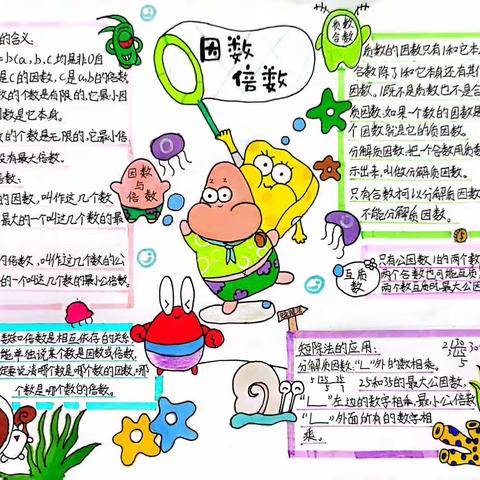 因数
倍数
的含义:
=b(a,b,c,均是非0自
是c的因数,c是a,b的倍数
数的个数是有限的,它最小因
因数是它本身。
数的个数是无限的,它最小倍
没有最大倍数。
倍数:
的因数,叫作这几个数
最大的一个叫这几个数的最
的倍数,叫作这几个数的公
的一个叫这几个数的最小公倍数。
因数
与
倍数
数和倍数是相互依存的关系
能单独说某个数是因数或倍数,
定要说清哪个数是哪个数的因数,哪
个数是哪个数的倍数。
质数
合数
质数的因数只有1和它本
合数除了1和它本身还有其
因数。1既不是质数也不是合
质因数:如果个数的因数是
个因数就是它的质因数。
分解质因数:把一个合数用质数
示出来,叫做分解质因数。
只有合数才可以分解质因数,
不能分解质因数。
互质
数
只有公因数1的两个数
两个合数也可能互质
两个数互质的最大公因
矩阵法的应用:
分解质因数:“L”外的数相乘。
25和35的最大公因数,
“L”左边的数字相乘,最小公倍数
“L”外面所有的数字相
乘。